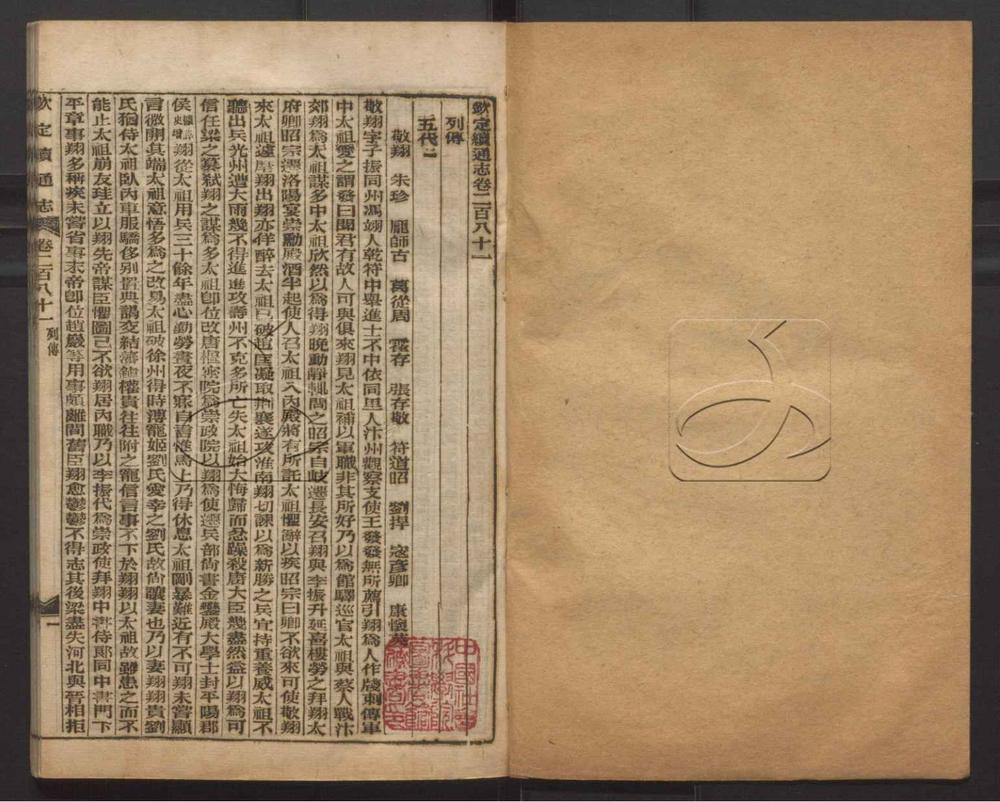 欽定續通志卷二百八十一
列傳
五代二
敬翔 朱珍 龐師古 葛從周 霍存 張存敬 符道昭 劉捍 寇彥卿 康懷英
敬翔字子振同州馮翊人乾符中舉進士不中依同里人汴州觀察支使王發發無所薦引翔爲人作牋刺傳軍
中太祖愛之謂發曰聞君有故人可與俱來翔見太祖補以軍職非其所好乃以爲館驛巡官太祖與蔡人戰汴
郊翔爲太祖謀多中太祖欣然以爲得翔晚動靜輒問之昭宗自岐還長安召翔與李振升延喜樓勞之拜翔太
府卿昭宗遷洛陽宴崇勳殿酒半起使人召太祖入內殿將有所託太祖懼辭以疾昭宗曰卿不欲來可使敬翔
來太祖遽麾翔出翔亦佯醉去太祖已破趙匡凝取荊襄遂攻淮南翔切諫以爲新勝之兵宜持重養威太祖不
聽出兵光州遭大雨幾不得進進攻壽州不克多所亡失太祖始大悔歸而忿躁殺唐大臣幾盡然益以翔爲可
信任梁之簒弒翔之謀爲多太祖卽位改唐樞密院爲崇政院以翔爲使遷兵部尙書金鑾殿大學士封平陽郡
侯翔從太祖用兵三十餘年盡心勤勞晝夜不寐自言惟馬上乃得休息太祖剛暴難近有不可翔未嘗顯
言微開其端太祖意悟多爲之改易太祖破徐州得時溥寵姬劉氏愛幸之劉氏故尙讓妻也乃以妻翔翔貴劉
氏猶侍太祖臥內車服驕侈別置典謁交結藩鎭權貴往往附之寵信言事不下於翔翔以太祖故雖患之而不
能止太祖崩友珪立以翔先帝謀臣懼圖己不欲翔居內職乃以李振代爲崇政使拜翔中書侍郞同中書門下
平章事翔多稱疾未嘗省事末帝卽位趙巖等用事頗離間舊臣翔愈鬱鬱不得志其後梁盡失河北與晉相拒
欽定續通志 卷二百八十一 列傳 一